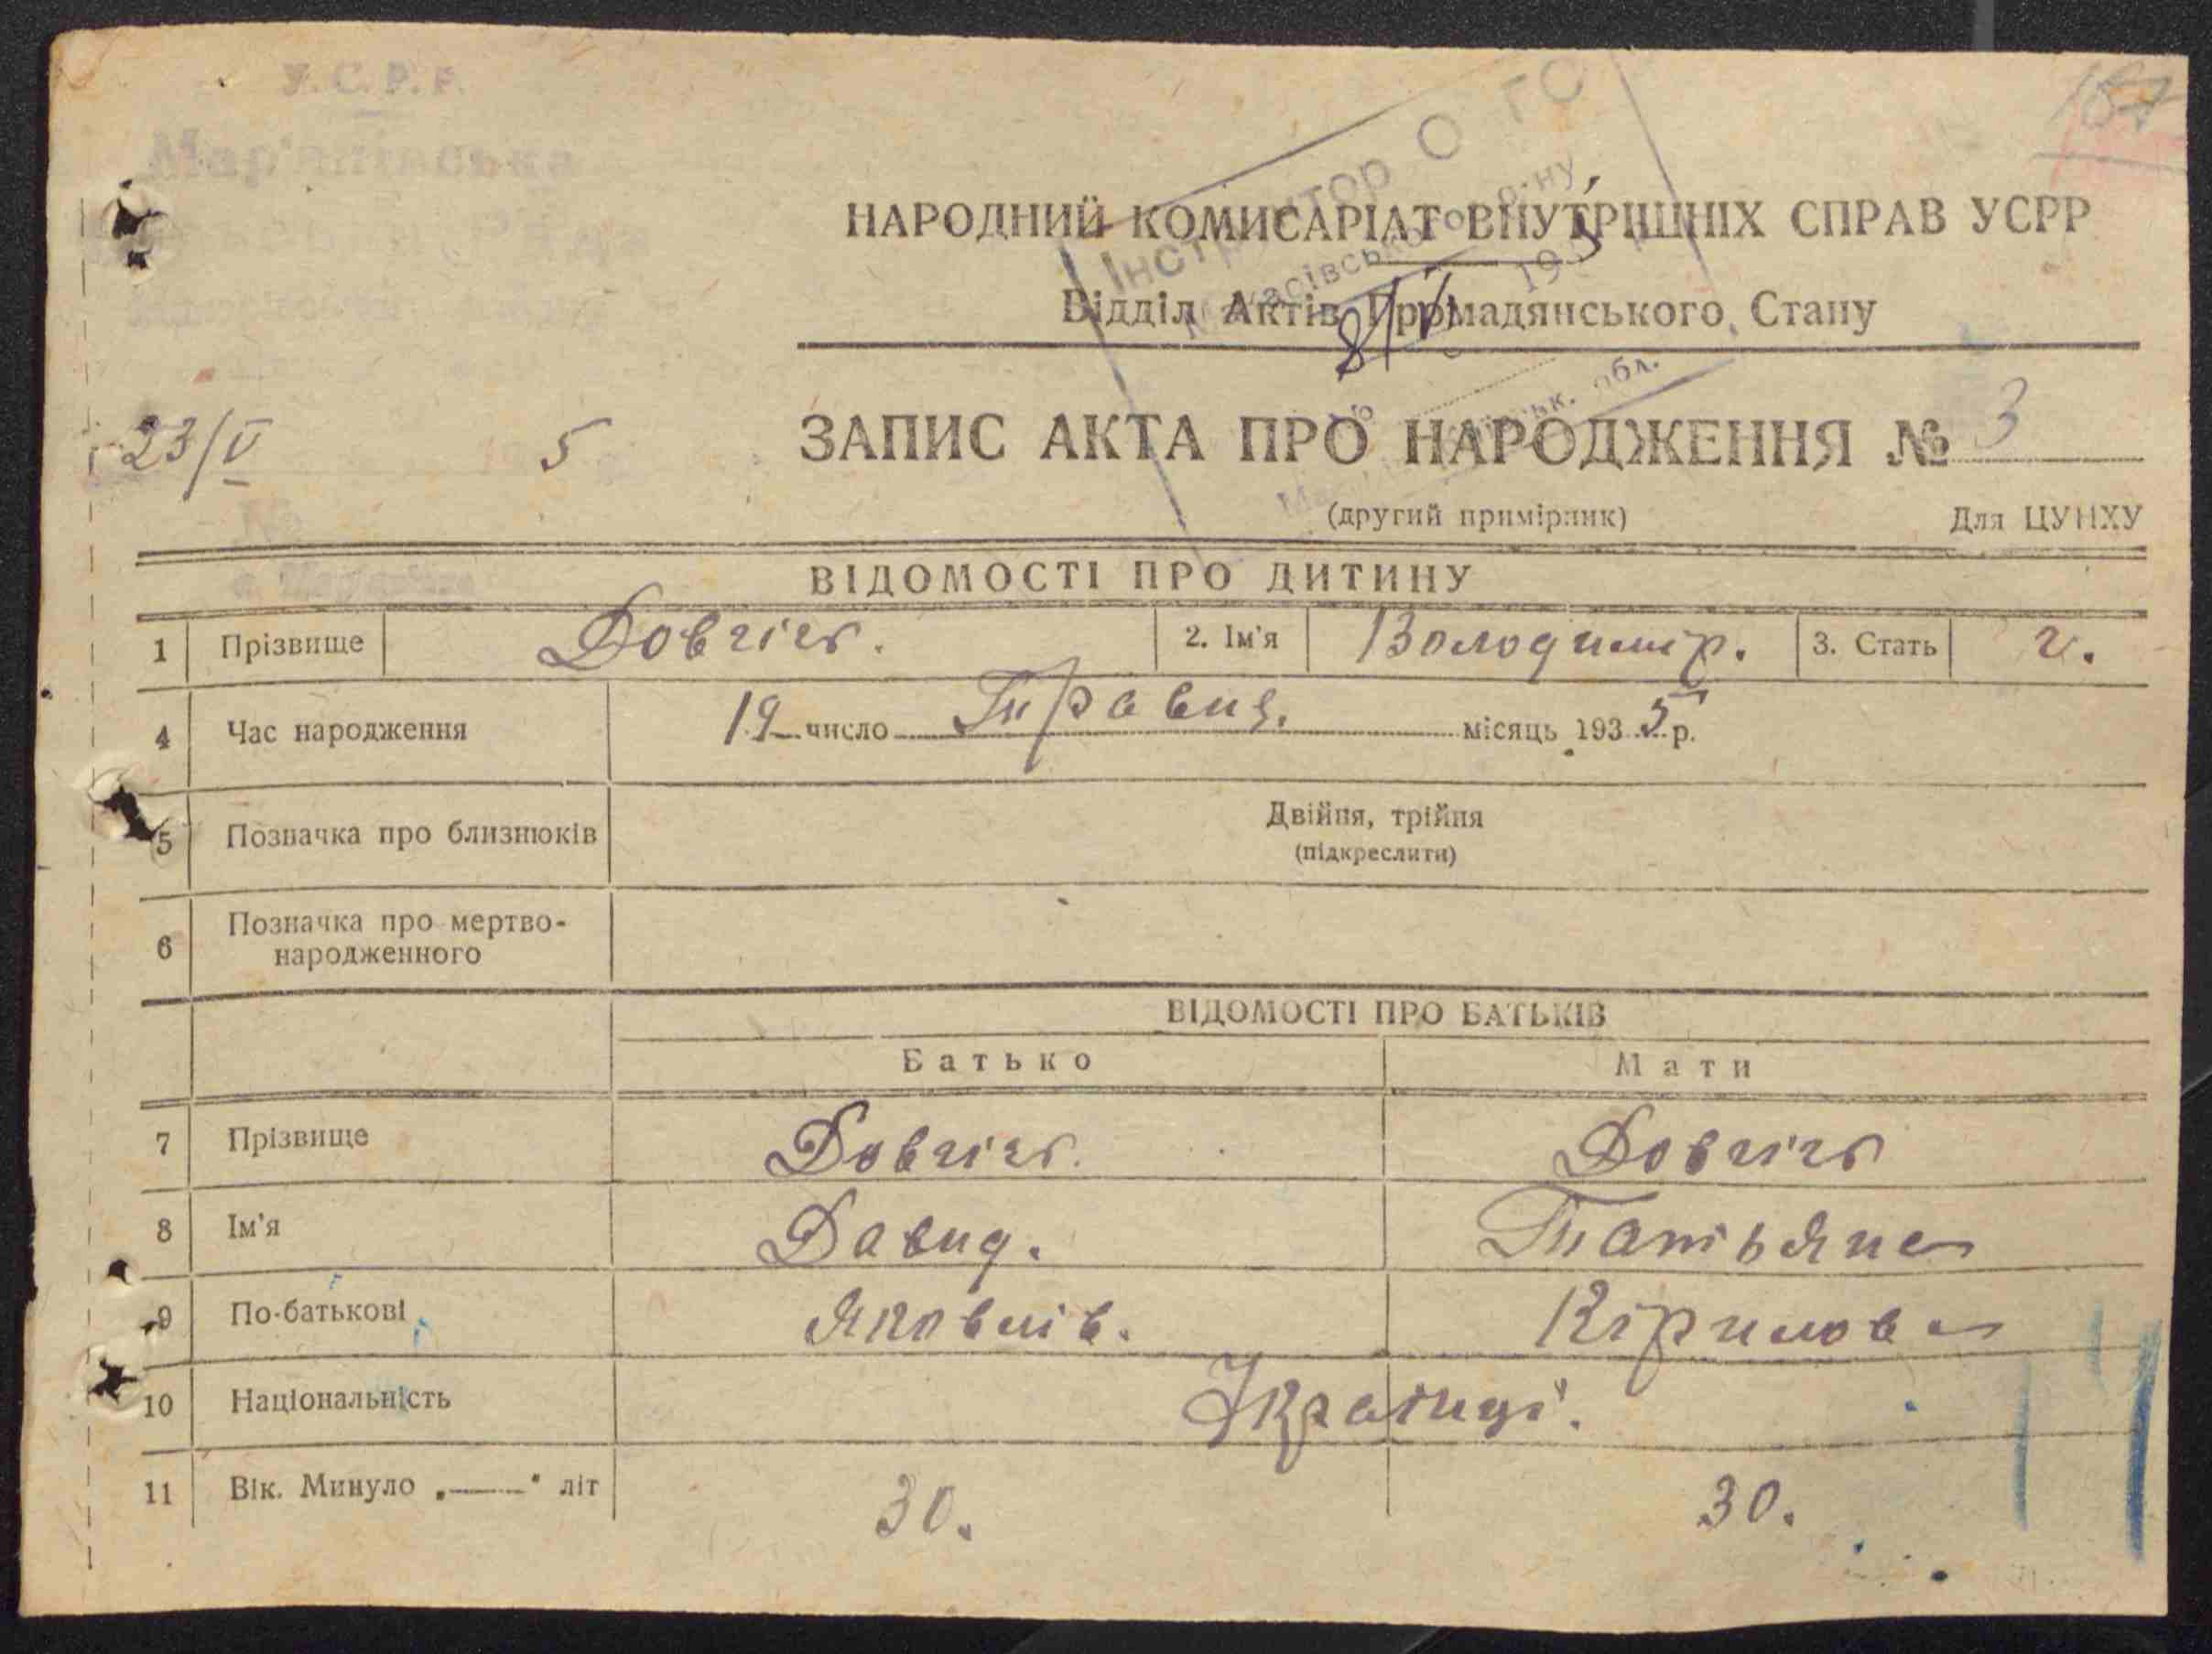 У.С.Р.Р.
Мар'янівська
167
Інструктор О ГС
НАРОДНИЙ КОМИСАРІАТ ВНУТРІШНІХ СПРАВ УСРР
8/VI
Відділ Актів Громадянського Стану
обл.
23/V 5
ЗАПИС АКТА ПРО НАРОДЖЕННЯ № 3
(другий примірник) Для ЦУНХУ
ВІДОМОСТІ ПРО ДИТИНУ
1 Прізвище Довгіч. 2. Ім'я Володимір. 3. Стать ч.
4 Час народження 19 число Травня. місяць 1935 р.
5 Позначка про близнюків Двійня, трійня
(підкреслити)
6 Позначка про мертво-
народженного
ВІДОМОСТІ ПРО БАТЬКІВ
Батько Мати
7 Прізвище Довгіч. Довгіч
8 Ім'я Давид. Татьяна
9 По-батькові Яковлів. Кірилова
10 Національність Українці.
11 Вік. Минуло „—“ літ 30. 30.